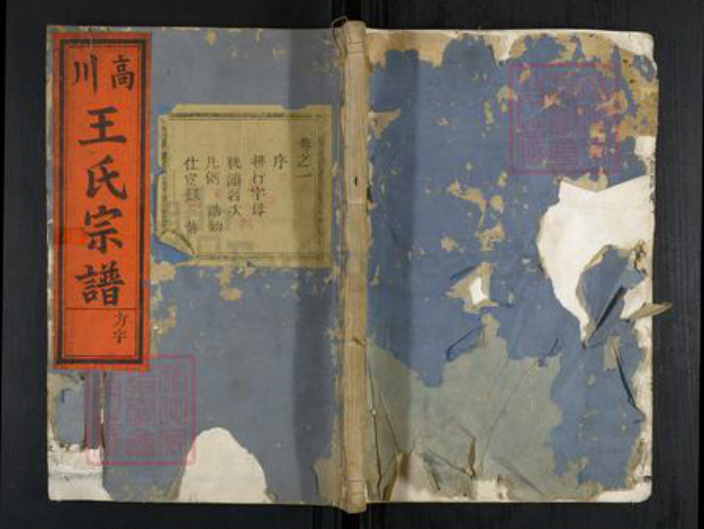 高川
王氏宗譜
方字
卷之一
序
排行字母
執譜名次
凡例 誥勅
仕宦錄